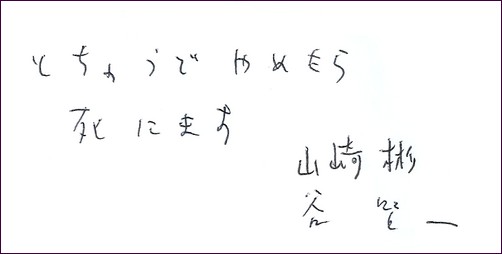 とちゅうで やめたら
死にます
山崎 彬
谷 賢一